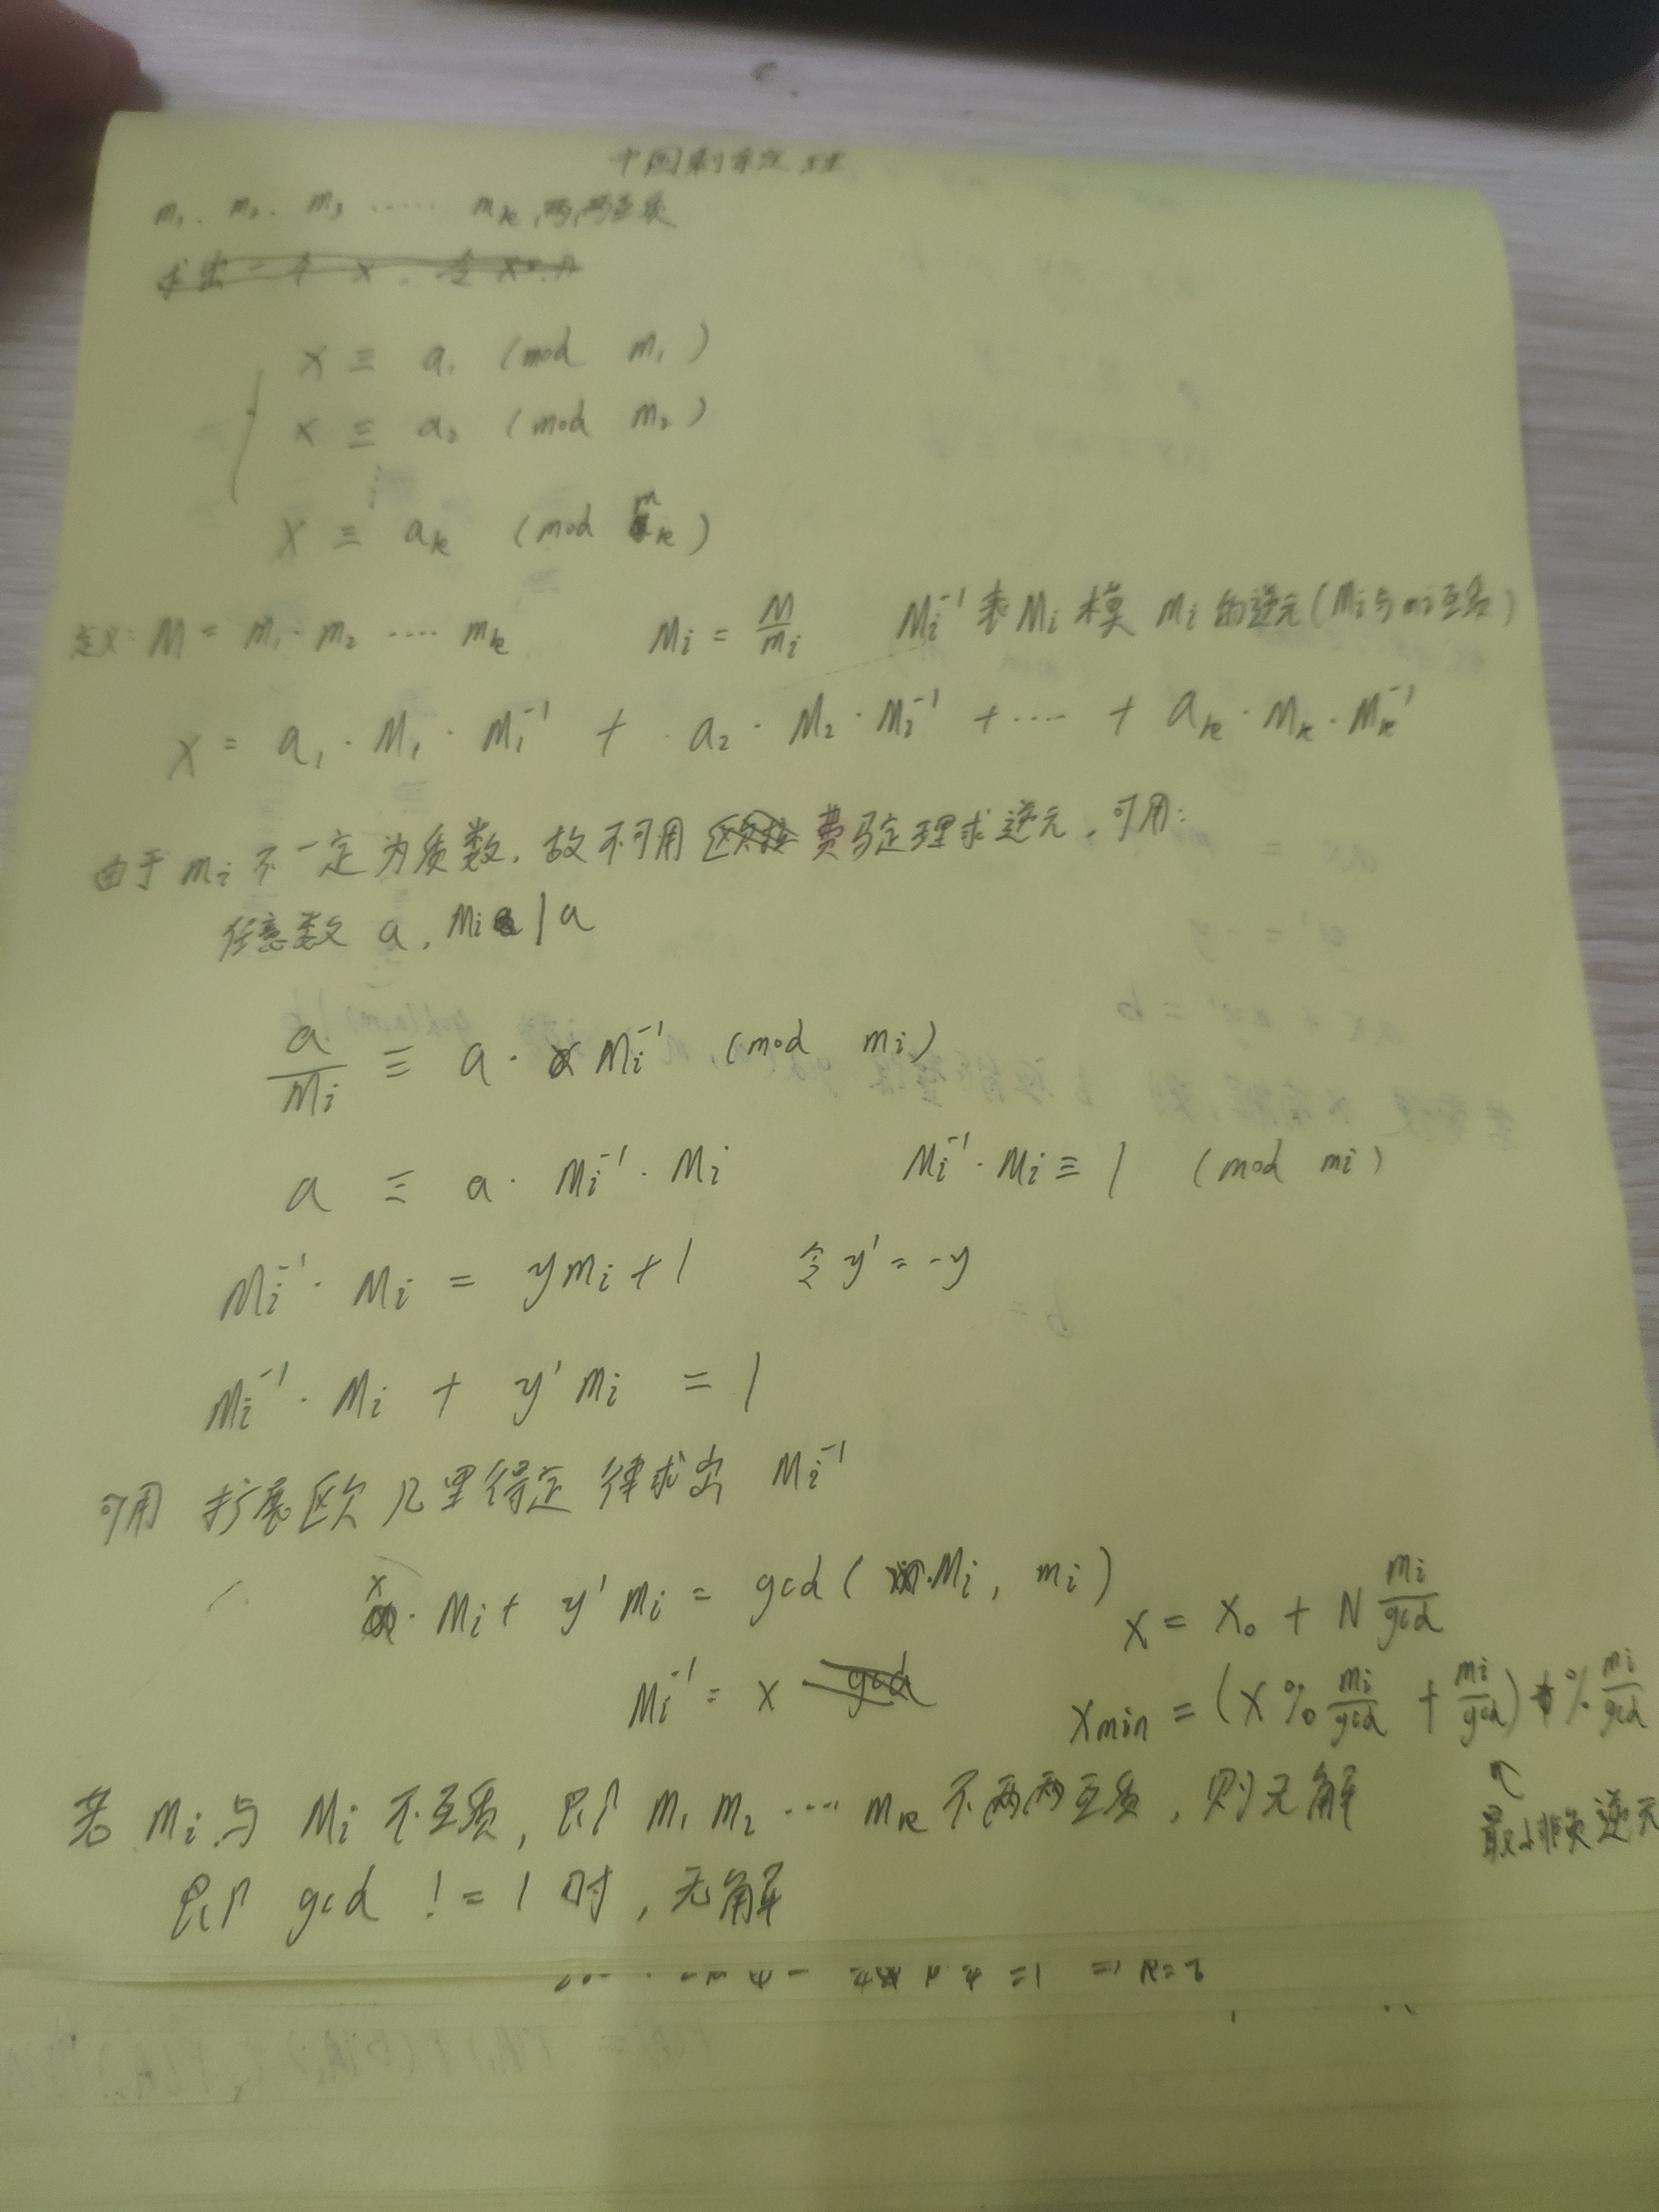 中国剩余定理
m₁、m₂、m₃ ······ mₖ 两两互质
求出一个 x, 令 x
x ≡ a₁ (mod m₁)
x ≡ a₂ (mod m₂)
⋮
x ≡ aₖ (mod mₖ)
定义: M = m₁·m₂ ···· mₖ Mᵢ = M/mᵢ Mᵢ⁻¹ 表 Mᵢ 模 mᵢ 的逆元 (Mᵢ与mᵢ互质)
x = a₁·M₁·M₁⁻¹ + a₂·M₂·M₂⁻¹ + ···· + aₖ·Mₖ·Mₖ⁻¹
由于 mᵢ 不一定为质数, 故不可用 欧拉 费马定理求逆元, 可用:
任意数 a, Mᵢ | a
a/Mᵢ ≡ a · Mᵢ⁻¹ (mod mᵢ)
a ≡ a · Mᵢ⁻¹ · Mᵢ Mᵢ⁻¹ · Mᵢ ≡ 1 (mod mᵢ)
Mᵢ⁻¹ · Mᵢ = ymᵢ + 1 令 y' = -y
Mᵢ⁻¹ · Mᵢ + y'mᵢ = 1
可用 扩展欧几里得定律求出 Mᵢ⁻¹
x · Mᵢ + y'mᵢ = gcd(Mᵢ, mᵢ) x = x₀ + N mᵢ/gcd
Mᵢ⁻¹ = x gcd xmin = (x % mᵢ/gcd + mᵢ/gcd) % mᵢ/gcd
↖
最小非负逆元
若 mᵢ 与 Mᵢ 不互质, 即 m₁ m₂ ···· mₖ 不两两互质, 则无解
即 gcd != 1 时, 无解